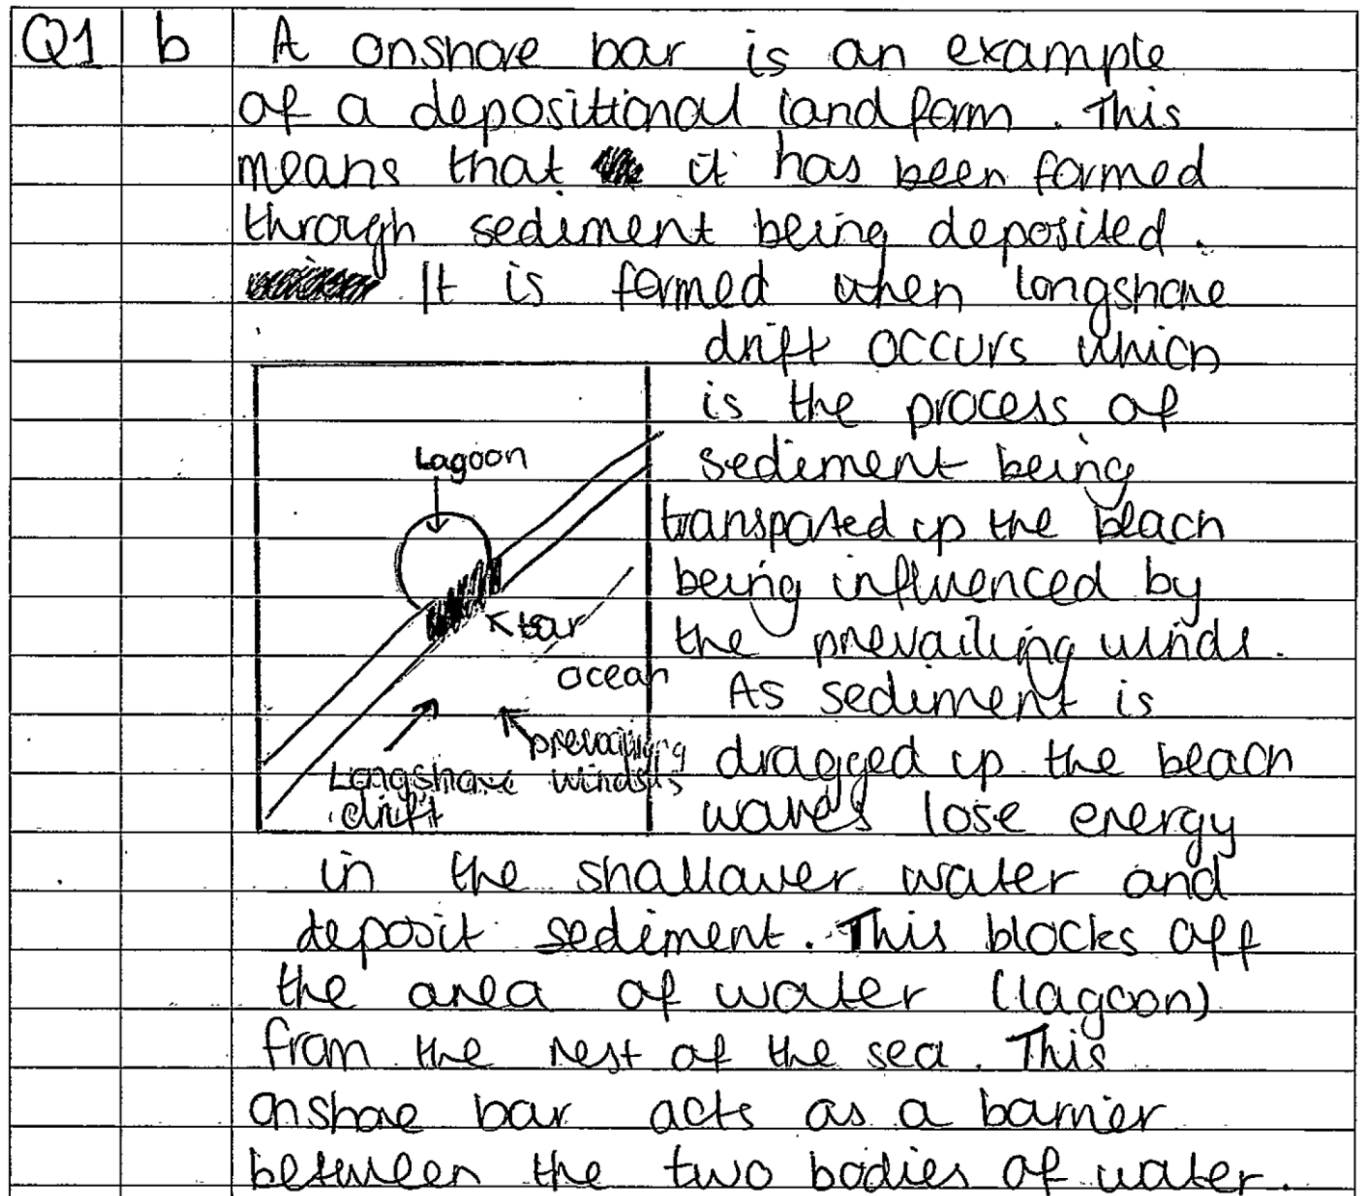 Q1 b A onshore bar is an example
of a depositional landform. This
means that it has been formed
through sediment being deposited.
It is formed when longshore
drift occurs which
is the process of
sediment being
transported up the beach
being influenced by
the prevailing winds.
As sediment is
dragged up the beach
waves lose energy
in the shallower water and
deposit sediment. This blocks off
the area of water (lagoon)
from the rest of the sea. This
onshore bar acts as a barrier
between the two bodies of water.
Lagoon
bar
ocean
prevailing
winds
Longshore
drift